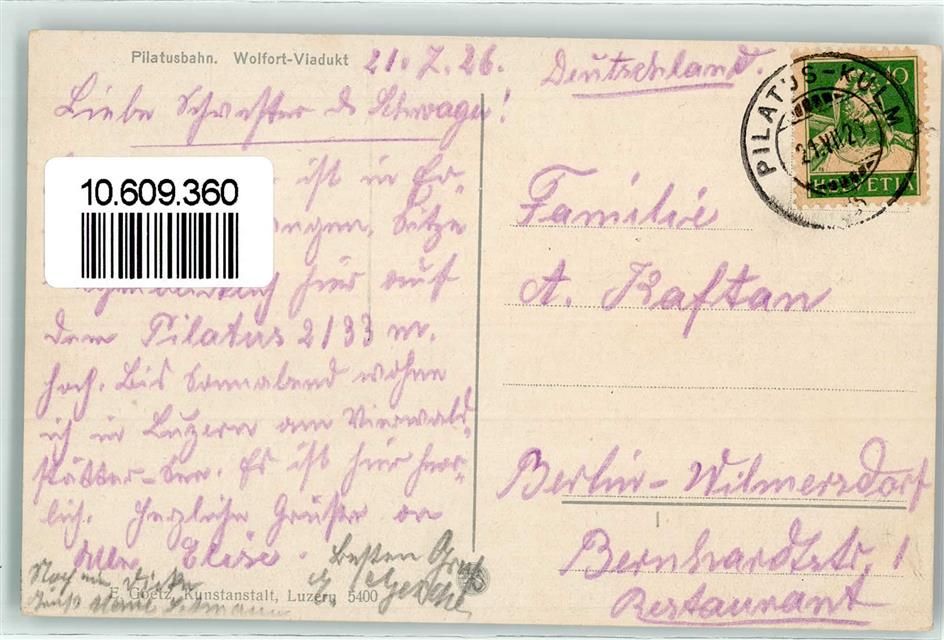 Pilatusbahn. Wolfort-Viadukt
21.7.26.
Liebe Schwester & Schwager!
ist in Er-
10.609.360
ungen. Sitze
hier auf
dem Pilatus 2133 m.
hoch. Bis Sonnabend wohne
ich in Luzern am Vierwald-
stätter-See. Es ist hier herr-
lich. Herzliche Grüße an
Alle Elise.
Besten Gruß
E. Goetz, Kunstanstalt, Luzern 5400
Deutschland.
PILATUS-KULM
21.VII.26
10
HELVETIA
Familie
A. Kaftan
Berlin-Wilmersdorf
Bernhardtstr. 1
Restaurant